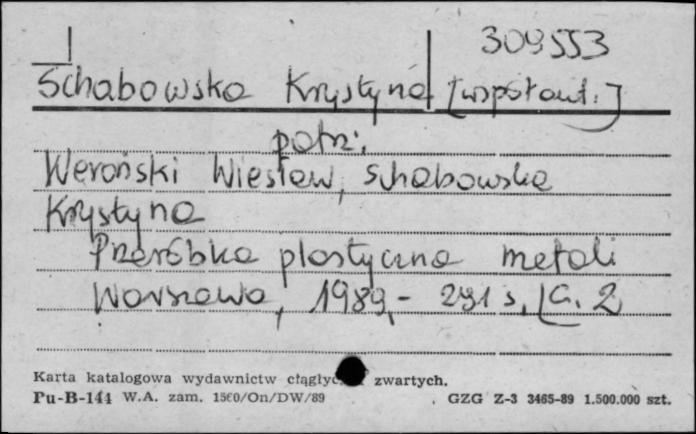 309553
Schabowska Krystyna [współaut.]
patrz:
Weroński Wiesław, Schabowska
Krystyna
Przeróbka plastyczna metali
Warszawa, 1989,- 291 s,
Karta katalogowa wydawnictw zwartych.
Pu-B-144 W.A. zam. 1560/On/DW/89
GZG Z-3 3465-89 1.500.000 szt.